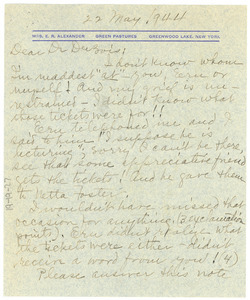 22 May, 1944
MRS. E. R. ALEXANDER GREEN PASTURES GREENWOOD LAKE, NEW YORK
Dear Dr DuBois:
I don't know whom
I'm maddest "at" you, Ernie or
myself! And my grief is un-
restrained - I didn't know what
these tickets were for!!
Ernie telephoned me and I
said to him "I suppose he is
lecturing, sorry I can't be there,
see that some appreciative friend
gets the ticket! And he gave them
to Etta Foster.
I wouldn't have missed that
occasion for anything (Exclamation
points). Ernie didn't realize what
the tickets were either - didn't
receive a word from you! (4)
Please answer this note